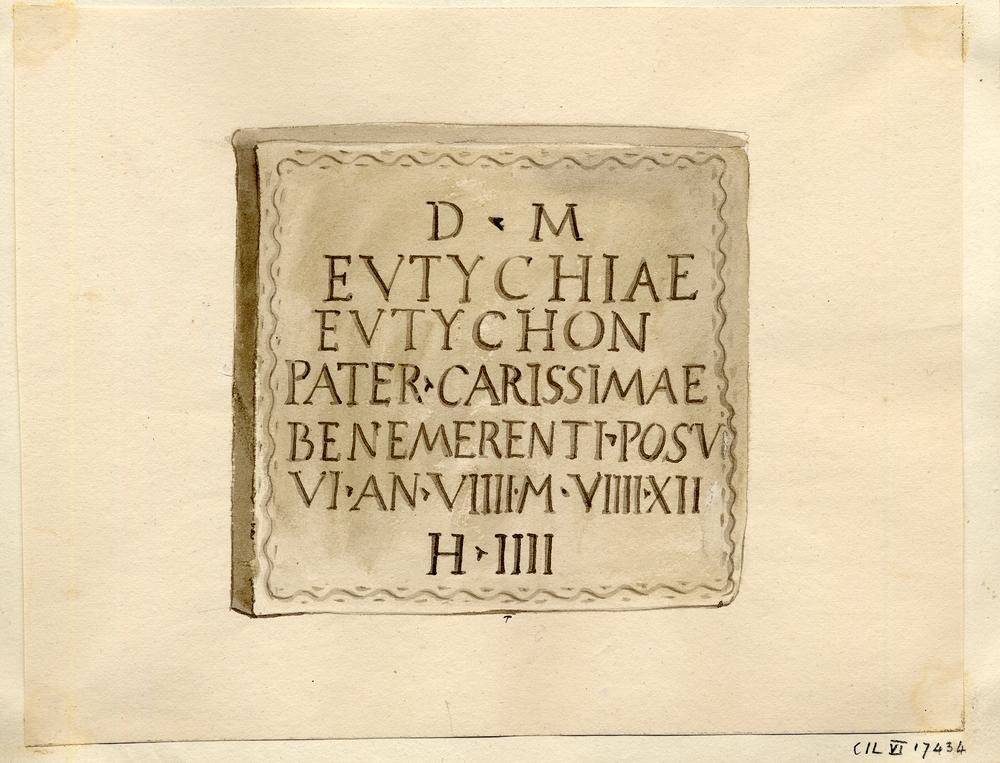 D · M
EVTYCHIAE
EVTYCHON
PATER·CARISSIMAE
BENEMERENTI·POSV
VI·AN·VIIII·M·VIIII·XII
H·IIII
CIL VI 17434